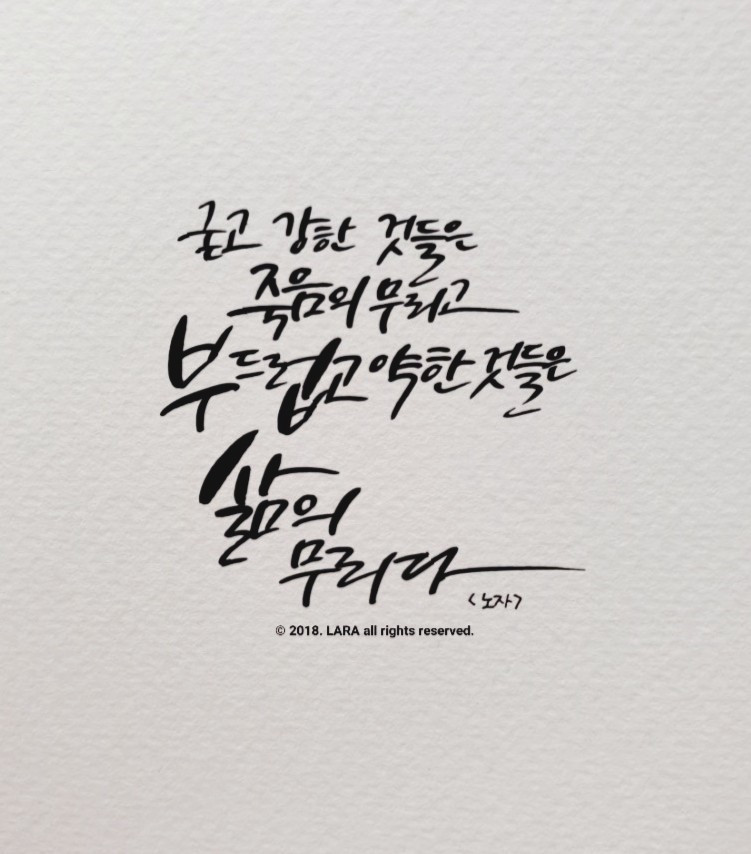 굳고 강한 것들은
죽음의 무리고
부드럽고 약한 것들은
삶의
무리다
<노자>
© 2018. LARA all rights reserved.